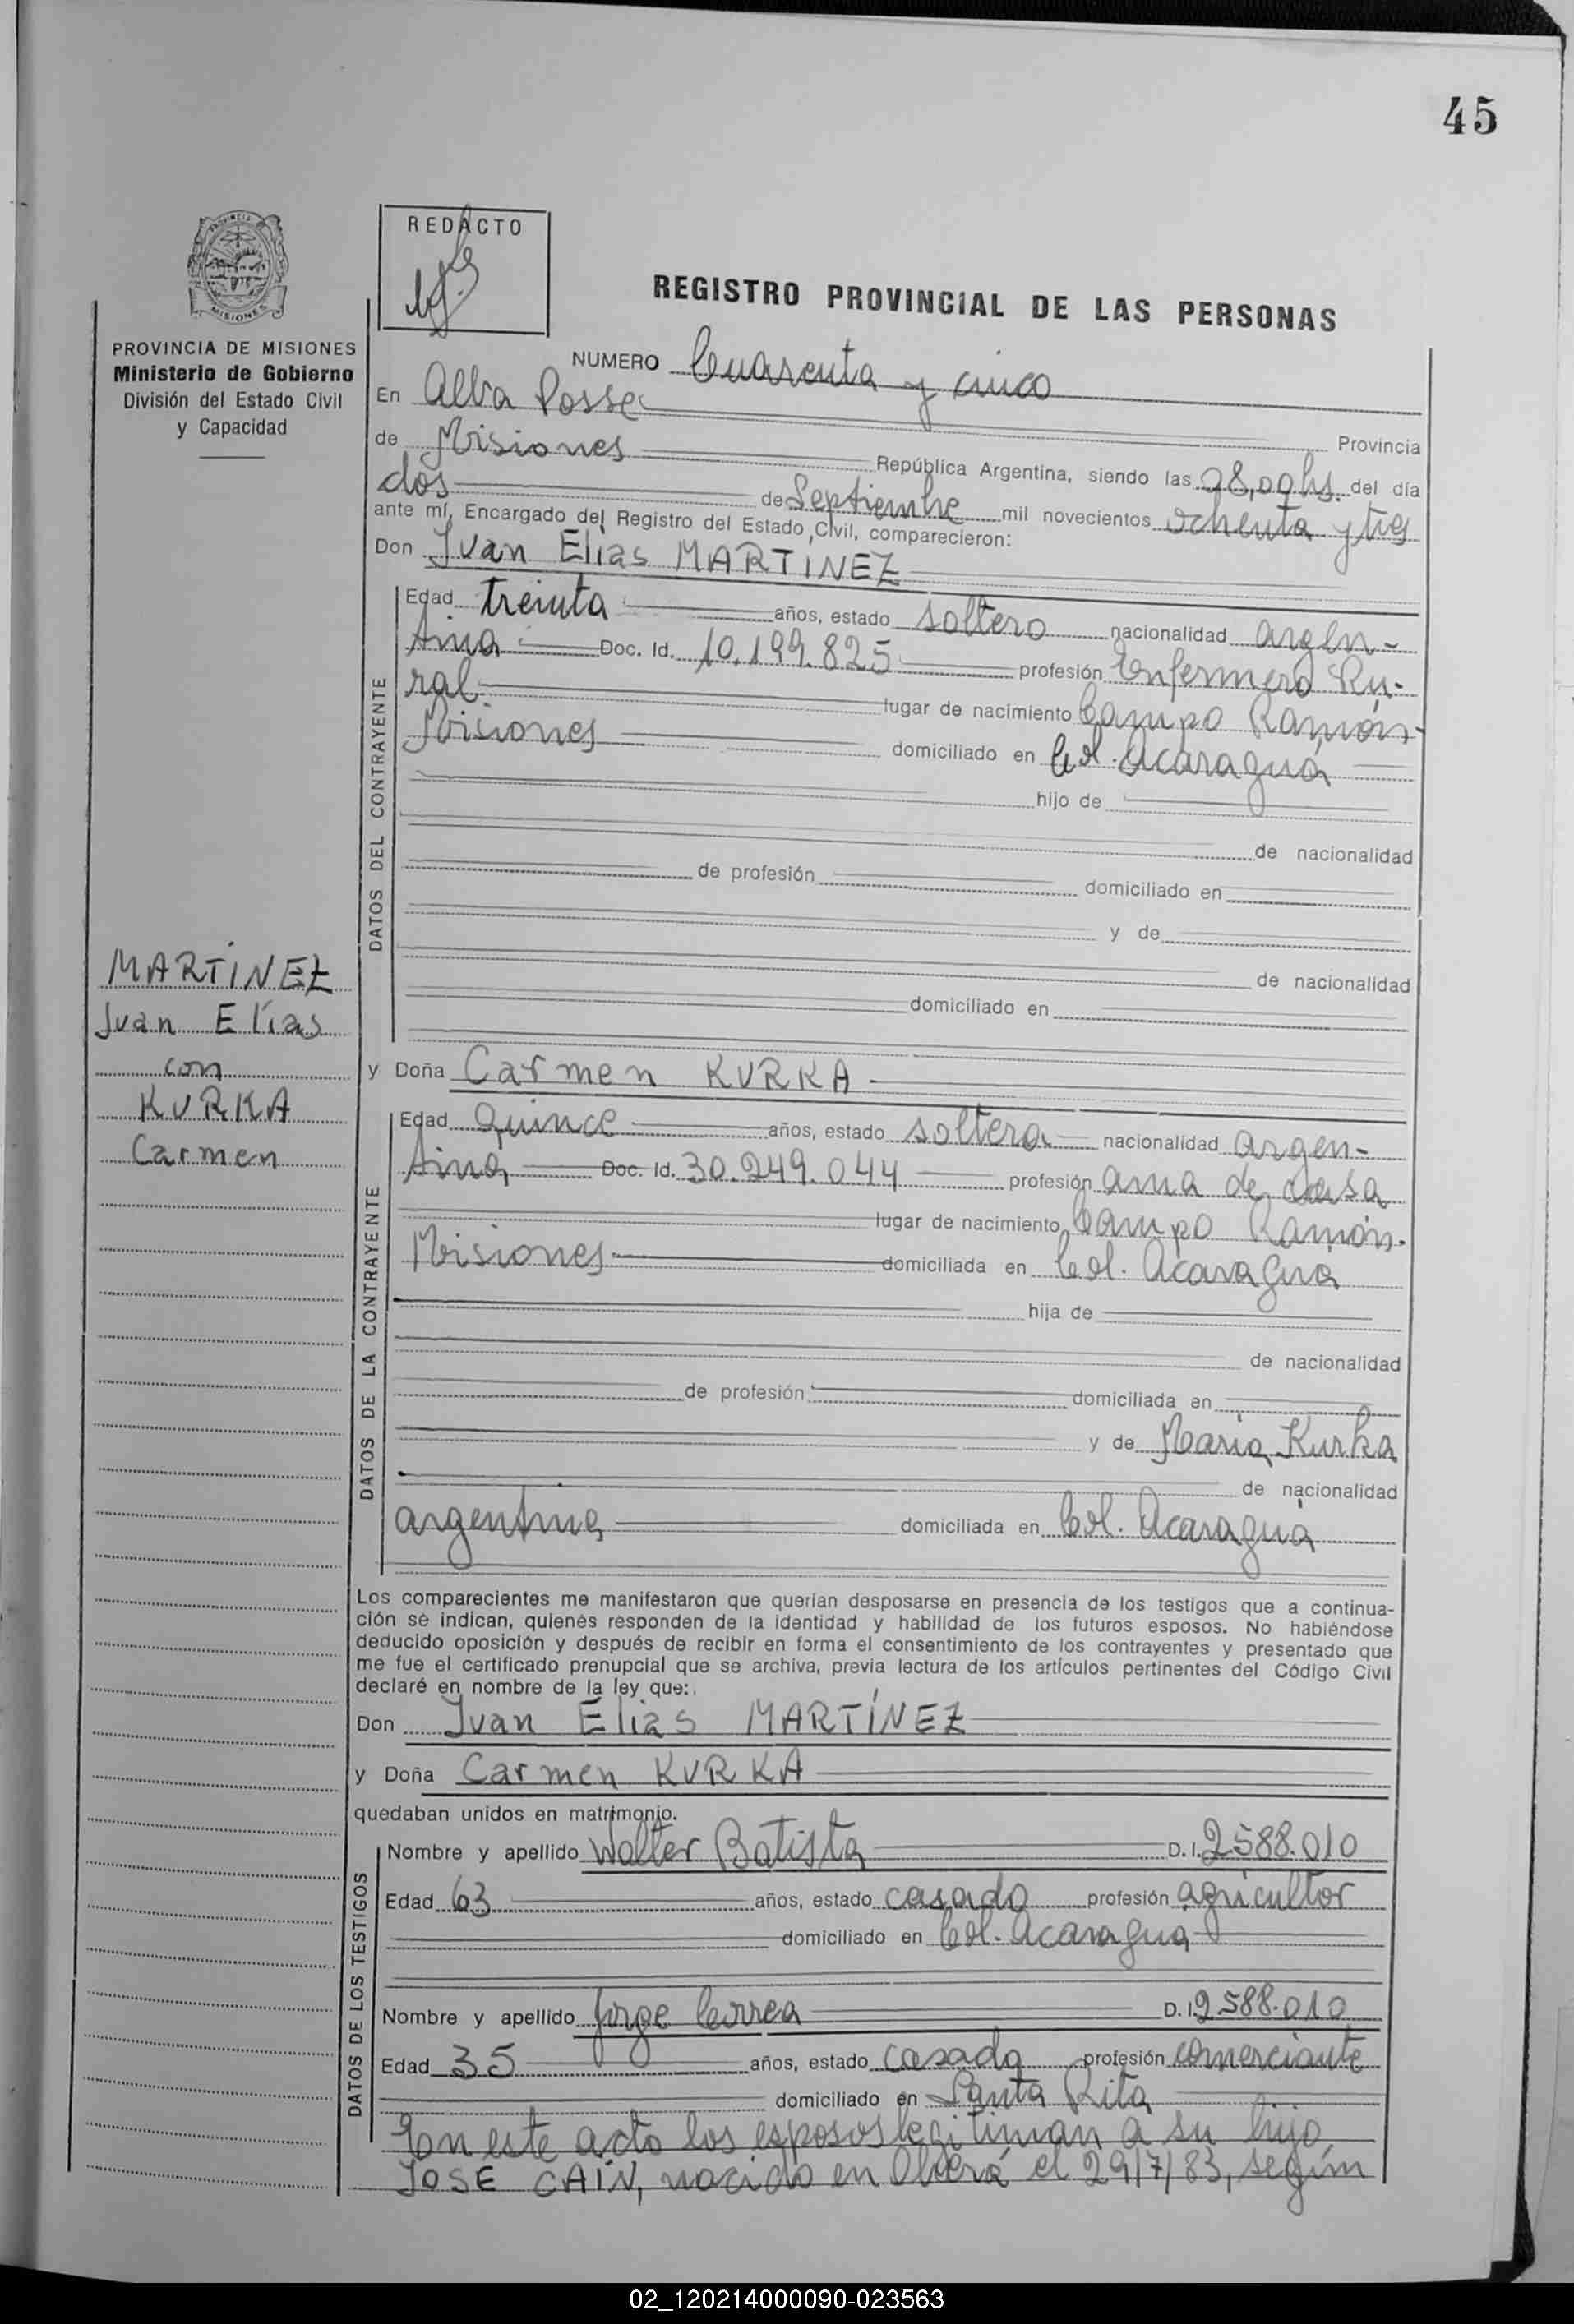 45
REDACTO
REGISTRO PROVINCIAL DE LAS PERSONAS
MISIONES
PROVINCIA DE MISIONES
Ministerio de Gobierno
División del Estado Civil
y Capacidad
NUMERO Cuarenta y cinco
En Alba Posse
Provincia
de Misiones República Argentina, siendo las 08,00hs. del día
dos de Septiembre mil novecientos ochenta y tres
ante mí, Encargado del Registro del Estado Civil, comparecieron:
Don Juan Elias MARTINEZ
DATOS DEL CONTRAYENTE
Edad treinta años, estado soltero nacionalidad argen-
tina Doc. Id. 10.199.825 profesión Enfermero Ru-
ral lugar de nacimiento Campo Ramón-
Misiones domiciliado en Col. Acaraguá
hijo de
de nacionalidad
de profesión domiciliado en
y de
de nacionalidad
domiciliado en
MARTINEZ
Juan Elías
con
KURKA
Carmen
y Doña Carmen KURKA
DATOS DE LA CONTRAYENTE
Edad Quince años, estado soltera nacionalidad argen-
tina Doc. Id. 30.249.044 profesión ama de casa
lugar de nacimiento Campo Ramón.
Misiones domiciliada en Col. Acaraguá
hija de
de nacionalidad
de profesión domiciliada en
y de María Kurka
de nacionalidad
argentina domiciliada en Col. Acaraguá
Los comparecientes me manifestaron que querían desposarse en presencia de los testigos que a continua-
ción se indican, quienes responden de la identidad y habilidad de los futuros esposos. No habiéndose
deducido oposición y después de recibir en forma el consentimiento de los contrayentes y presentado que
me fue el certificado prenupcial que se archiva, previa lectura de los artículos pertinentes del Código Civil
declaré en nombre de la ley que:
Don Juan Elias MARTÍNEZ
y Doña Carmen KURKA
quedaban unidos en matrimonio.
DATOS DE LOS TESTIGOS
Nombre y apellido Walter Batista D. I. 2588.010
Edad 63 años, estado casado profesión agricultor
domiciliado en Col. Acaragua
Nombre y apellido Jorge Correa D. I. 2588.010
Edad 35 años, estado casado profesión comerciante
domiciliado en Santa Rita
En este acto los esposos legitiman a su hijo
JOSE CAÍN, nacido en Oberá el 29/7/83, según
02_120214000090-023563